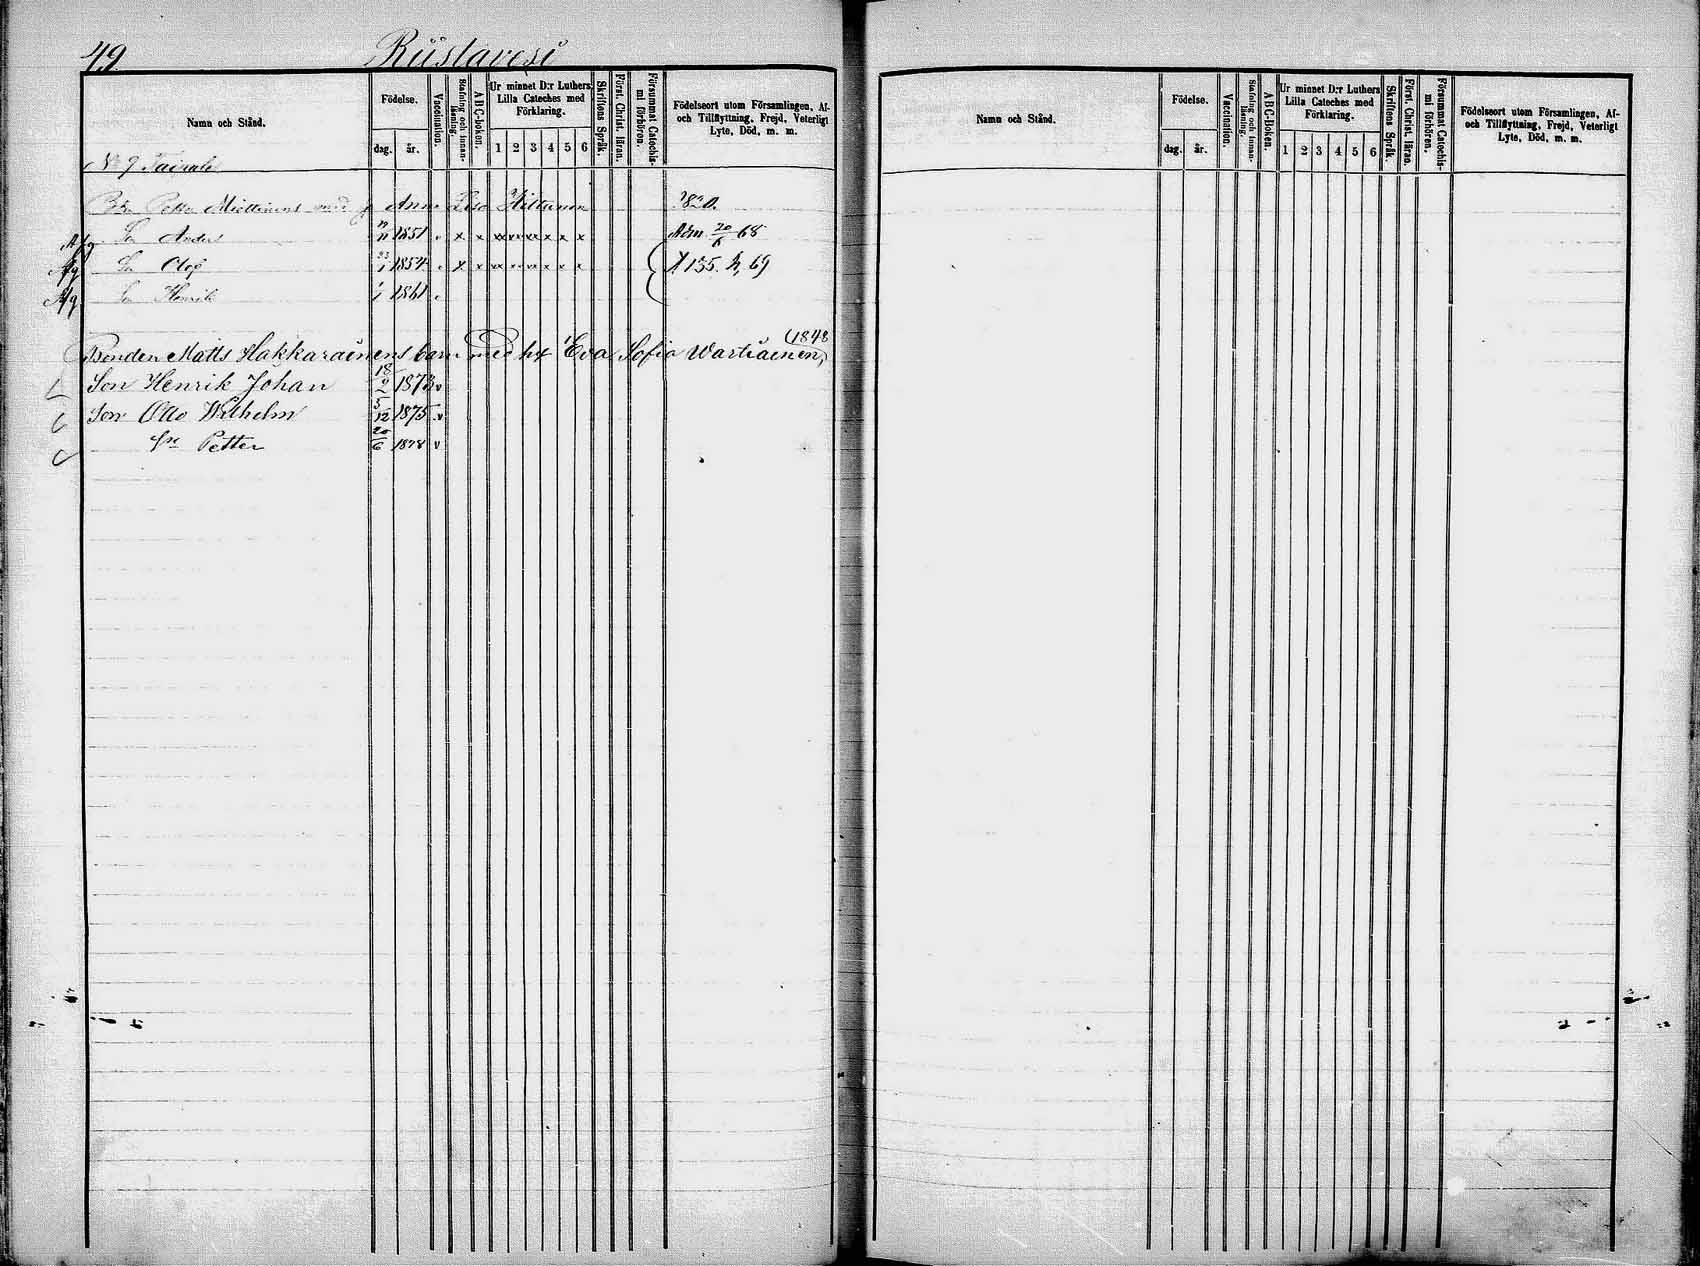 49 Riistavesi
Namn och Stånd.
Födelse.
dag. år.
Vaccination.
Stafning och innanläsning.
A B C-boken.
Ur minnet D:r Luthers Lilla Cateches med Förklaring.
1 2 3 4 5 6
Skriftens Språk.
Först. Christ. läran.
Försummat Catechismi förhören.
Födelseort utom Församlingen, Af- och Tillflyttning, Frejd, Veterligt Lyte, Död, m. m.
No 9
Petter Miettinens med Anna Lisa Hiltunen
Afg. Sn Anders 11/11 1851 v x x xx x x x x x Adm. 20/6 68
Afg Sn Olof 23/1 1854 v x x x x x x x x 135. 69
Afg. Sn Henrik 1861 v
Bonden Matts Hakkarainens barn med h+ Eva Sofia Wartiainen, (1848
Son Henrik Johan 18/2 1873 v
Son Otto Wilhelm 5/12 1875 v
Sn Petter 20/6 1878 v
Namn och Stånd.
Födelse.
dag. år.
Vaccination.
Stafning och innanläsning.
A B C-boken.
Ur minnet D:r Luthers Lilla Cateches med Förklaring.
1 2 3 4 5 6
Skriftens Språk.
Först. Christ. läran.
Försummat Catechismi förhören.
Födelseort utom Församlingen, Af- och Tillflyttning, Frejd, Veterligt Lyte, Död, m. m.